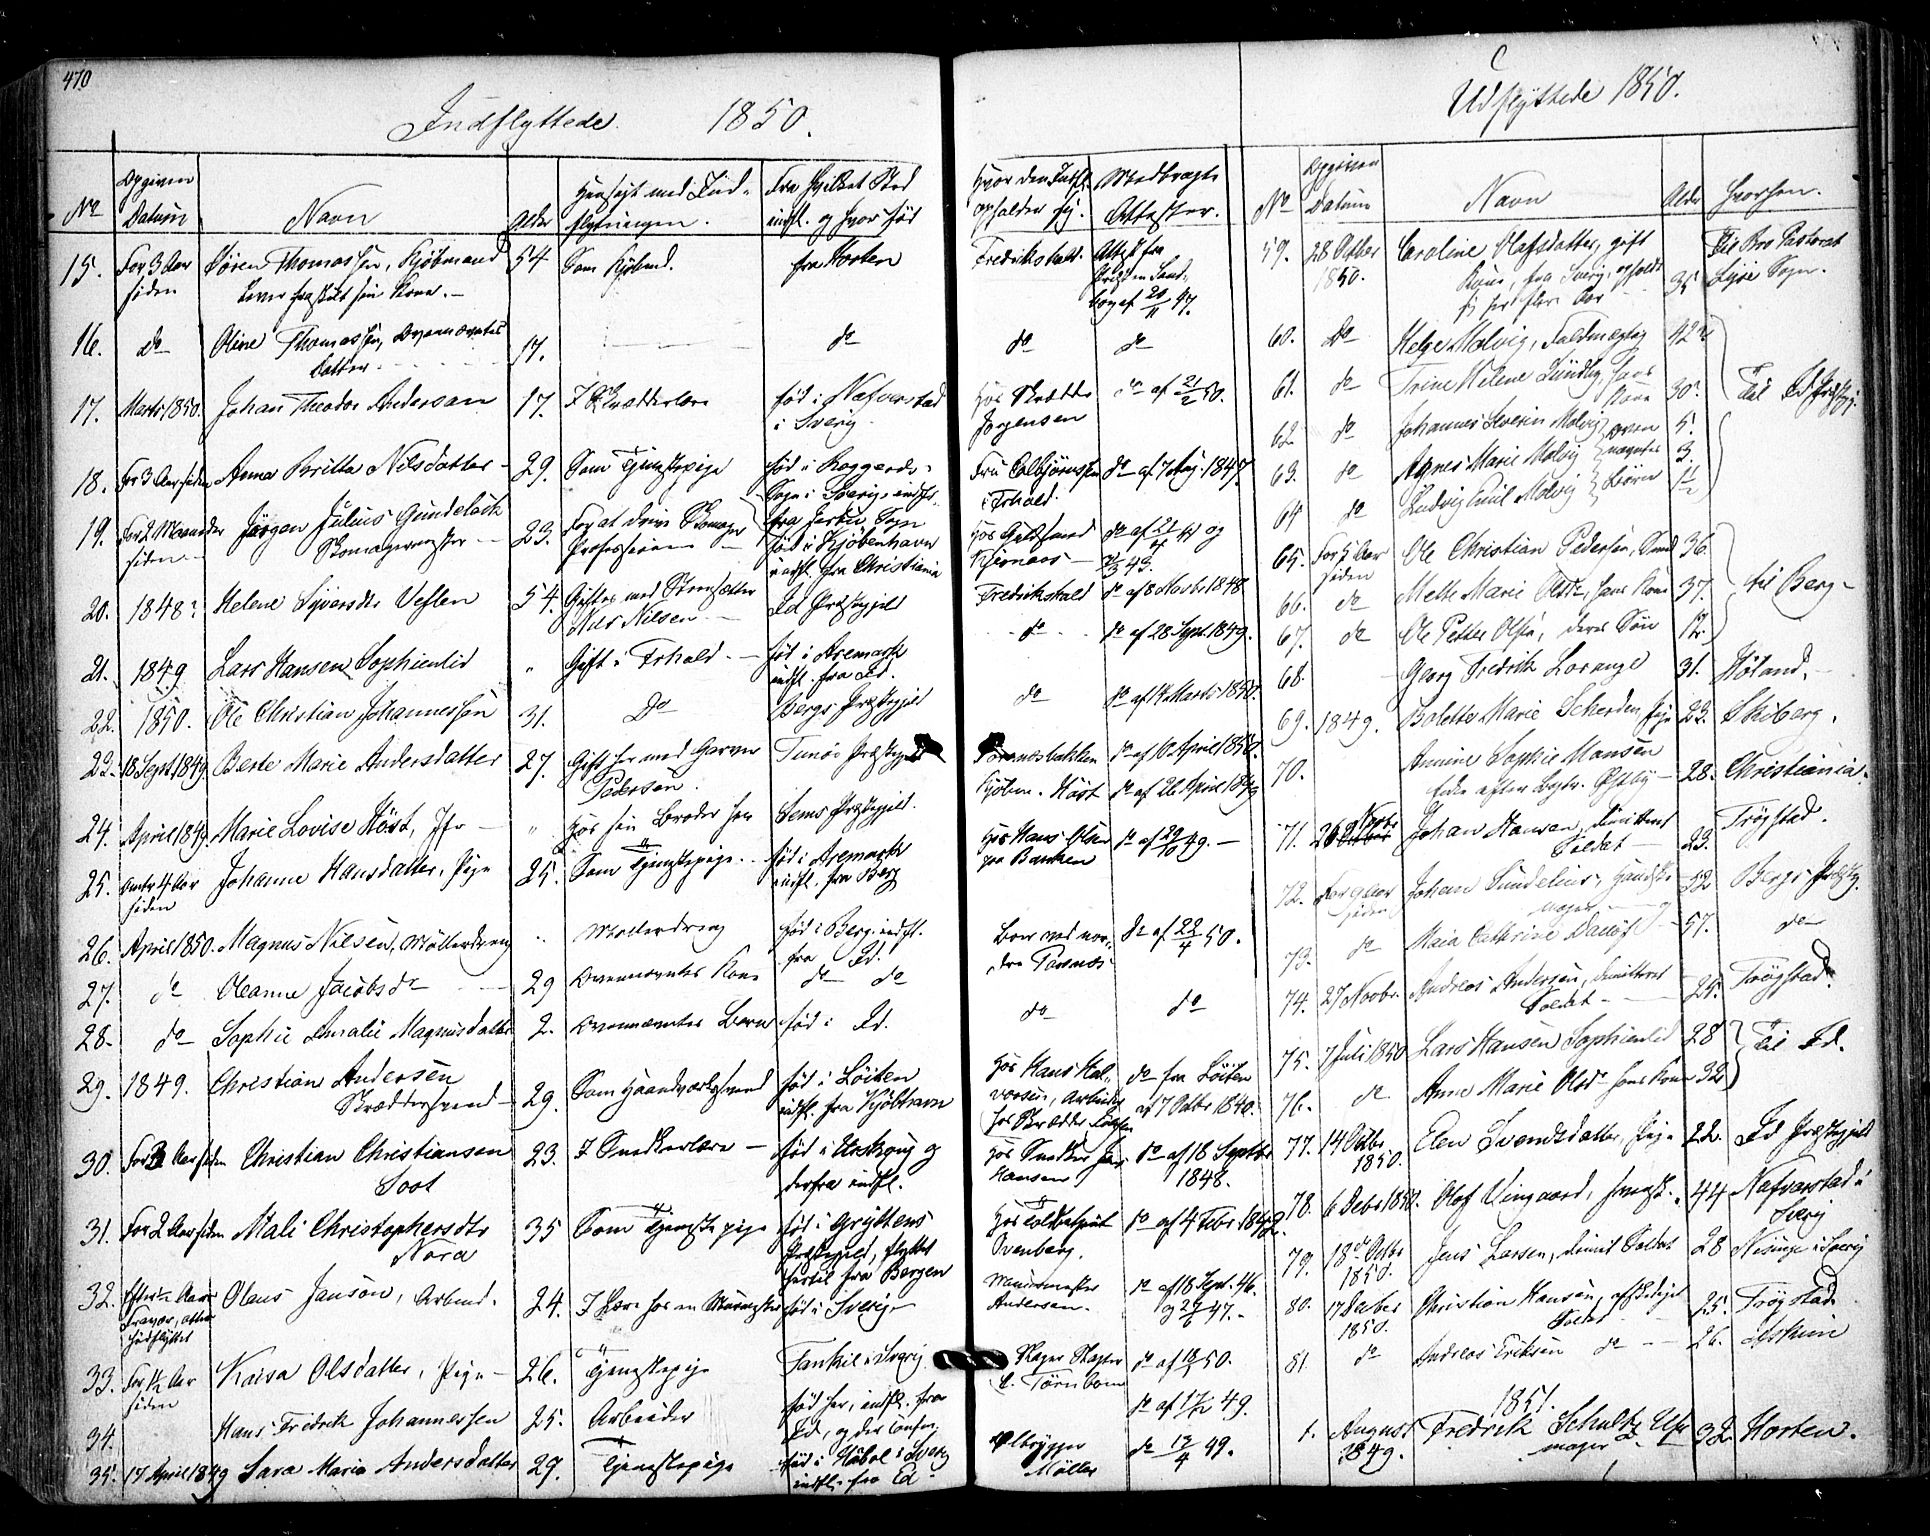 470
Indflyttede 1850.
No Opgiven Datum Navn Alder Hensigt med Indflytningen. Fra hvilket Sted indfl. og hvor født Hvor den Indfl. opholder sig. Medbragte Attester.
15. For 3 Aar siden Sören Thomassen, Kjöbmand 54 fra Horten Fredrikshald. Attest fra
Lever fraskilt sin Kone.
16. do Oline Thomassen, Ovennævntes Datter 17. do do do
17. Marts 1850. Johan Theodor Andersen 17. I Skrædderlære født i Nafverstad i Sverig. Hos Skrædder Jørgensen do af 21/2 50.
18. For 3 Aar siden Anna Britta Nilsdatter 29. Som Tjenestepige født i Sogn i Sverig, indfl. Fru Colbjørnsen i Frhald. do af 7 Aug. 1847.
19. For 2 Maaneder siden Jørgen Julius Gundelach Skomagermester 23. For at drive Skomager Professionen født i Kjöbenhavn indfl. fra Christiania
20. 1848? Helene Syversdtr Veslen 54. Giftes med Nils Nilsen Id Præstegjeld Fredrikshald do af 8 Novbr 1848
21. 1849 Lars Hansen Sophienlid " Gift i Frhald. født i Aremark indfl. fra Id. do do af 28 Sept. 1849.
22. 1850. Ole Christian Johannessen 31. Do Bergs Præstegjeld do do af 14 Marts 1850.
23. 18 Sept. 1849 Berte Marie Andersdatter 27. Gift her med Garver Pedersen. Tunø Præstegjeld do af 10 April 1850.
24. April 1849 Marie Lovise Höst, Jfr " Hos sin Broder her Sems Præstegjeld. Kjöbm. Höst do af 26 April 1849
25. 4 Aar siden Johanne Hansdatter, Pige 25. Som Tjenestepige født i Aremark indfl. fra Berg Hos Hans Olsen paa Banken do af 29/10 49.
26. April 1850. Magnus Nilsen, Møllerdreng " Møllerdreng født i Berg, indfl. fra Id. do af 22/4 50.
27. do Oleanne Jacobsdr 29 Ovennævntes Kone do do do do
28. do Sophie Amalie Magnusdatter 2. Ovennævntes Barn født i Id.
29. 1849. Christian Andersen Skræddersvend 29. Som Haandværkssvend født i Löiten indfl. fra Kjöbhavn Hos Hans Halvorsen, Arbeider hos Skrædder do fra Löiten af 7 Octbr 1840.
30. For 3 Aar siden Christian Christiansen Soot 23. I Snedkerlære født i og derfra indfl. Hos Snedker Hansen do af 18 Septbr 1848.
31. For 2 Aar siden Mali Christophersdtr Nora 35 Som Tjenestepige født i Gryttens Præstegjeld, flyttet hertil fra Bergen Hos Ovenberg. do af 4 Febr 1848.
32. Efter Aars Fravær, atter indflyttet Olaus Jansen, Arbmd. 24. I Lære hos en Murmester født i Sverig Muurmester Andersen. do af 18 Sept. 46. og 47.
33. For 1½ Aar siden Kaisa Olsdatter, Pige 26. Tjenestepige i Sverig Törnbom do af 50.
34. Hans Fredrik Johannessen 25. Arbeider født her, indfl. fra Id, og der do af 49.
35. 17 April 1849 Sara Maria Andersdatter 29. Tjenestepige født i Håbol i Sverig indfl. fra Id Möller do af 13/4 49.
Udflyttede 1850.
No Opgiven Datum Navn Alder Hvorhen.
59. 28 Octber 1850. Caroline Olafsdatter, gift Kone, fra Sverig, opholdt sig her flere Aar 35 Til Bro Pastorat Sogn.
60. Do Helge Molvig, Fuldmægtig 42 Til Id Præstegj.
61. do Trine Helene Lundby, hans Kone 30
62. do Johannes Severin Molvig ovennævntes Börn 5.
63. do Agnes Marie Molvig 3.
64 do Ludvig Emil Molvig 1½
65. For 5 Aar siden Ole Christian Pedersen, Smed 36. til Berg
66. do Mette Marie Olsdr, hans Kone 37.
67. do Ole Petter Olsen, deres Sön 12.
68. Georg Fredrik Lorange 31. Höland.
69. 1849. Bolette Marie Scherden, Pige 23. Skiberg.
70. Annine Sophie Hansen Enke efter 28. Christiania.
71. 26 Novbr Johan Hansen, Dimitteret Soldat 23. Trögstad.
72. For 9 Aar siden Johan Sundelius, Handskemager 52 Bergs Præsteg.
73. do Maia Cathrine 57. do
74. 27 Novbr Andreas Andersen, dimitteret Soldat 25. Trögstad.
75. 7 Juli 1850 Lars Hansen Sophienlid 28 Til Id.
76. do Anne Marie Olsdr hans Kone 32
77. 14 Octbr 1850. Elen Svendsdatter, Pige 22. Id Præstegjeld
78. 6 Debr 1850. Olof Vingaard, 44 Nafverstad i Sverig
79. 18 Octbr 1850. Jens Larsen, dimit Soldat 28 i Sverig
80. 17 Decber 1850. Christian Hansen, afskediget Soldat 25. Trögstad
81. do Andreas Eriksen do 26. Eskum
1851.
1. August 1849. Fredrik Schultz Uhrmager 32 Horten.